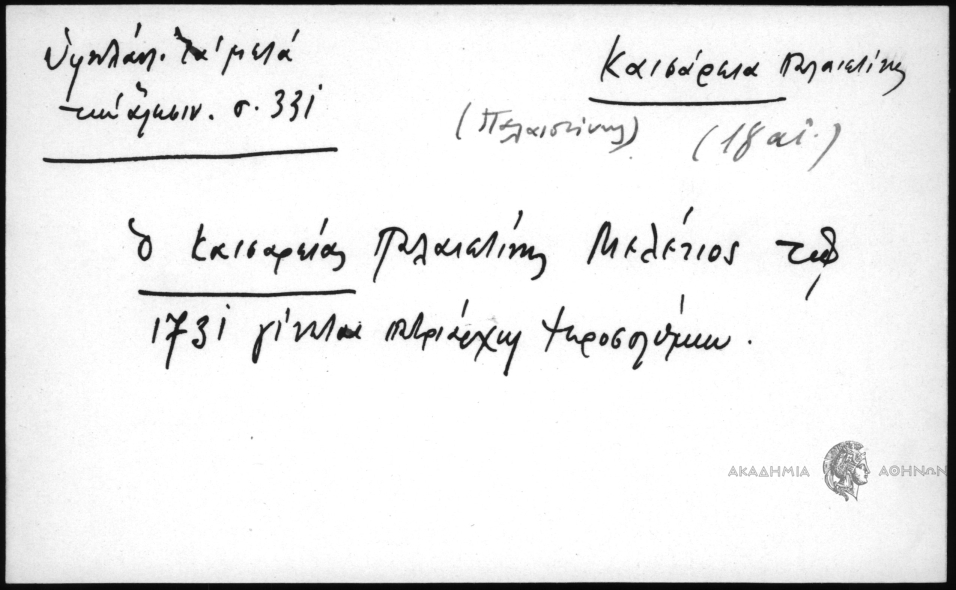 Ὑψηλάντ. Τὰ μετὰ
τὴν ἅλωσιν. σ. 331
Καισάρεια Παλαιστίνης
(Παλαιστίνης) (18 αἰ.)
ὁ Καισαρείας Παλαιστίνης Μελέτιος τῷ
1731 γίνεται πατριάρχης Ἱεροσολύμων.
ΑΚΑΔΗΜΙΑ ΑΘΗΝΩΝ